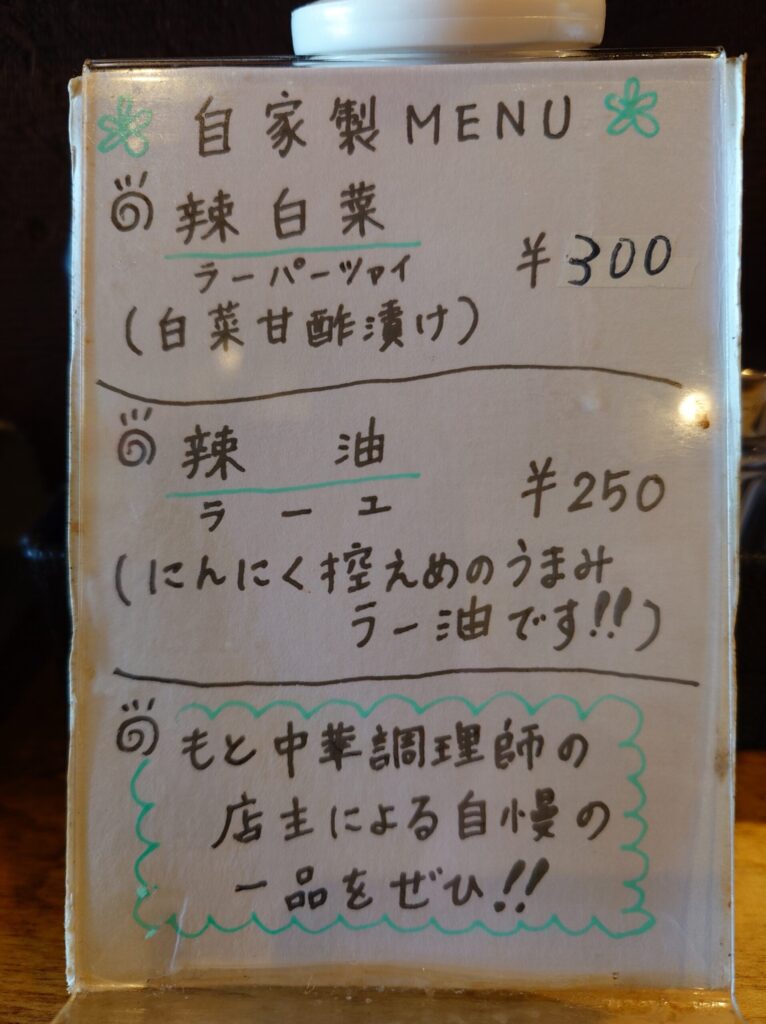 自家製MENU
辣白菜
ラーパーツァイ
¥300
(白菜甘酢漬け)
辣油
ラーユ
¥250
(にんにく控えめのうまみ
ラー油です!!)
もと中華調理師の
店主による自慢の
一品をぜひ!!